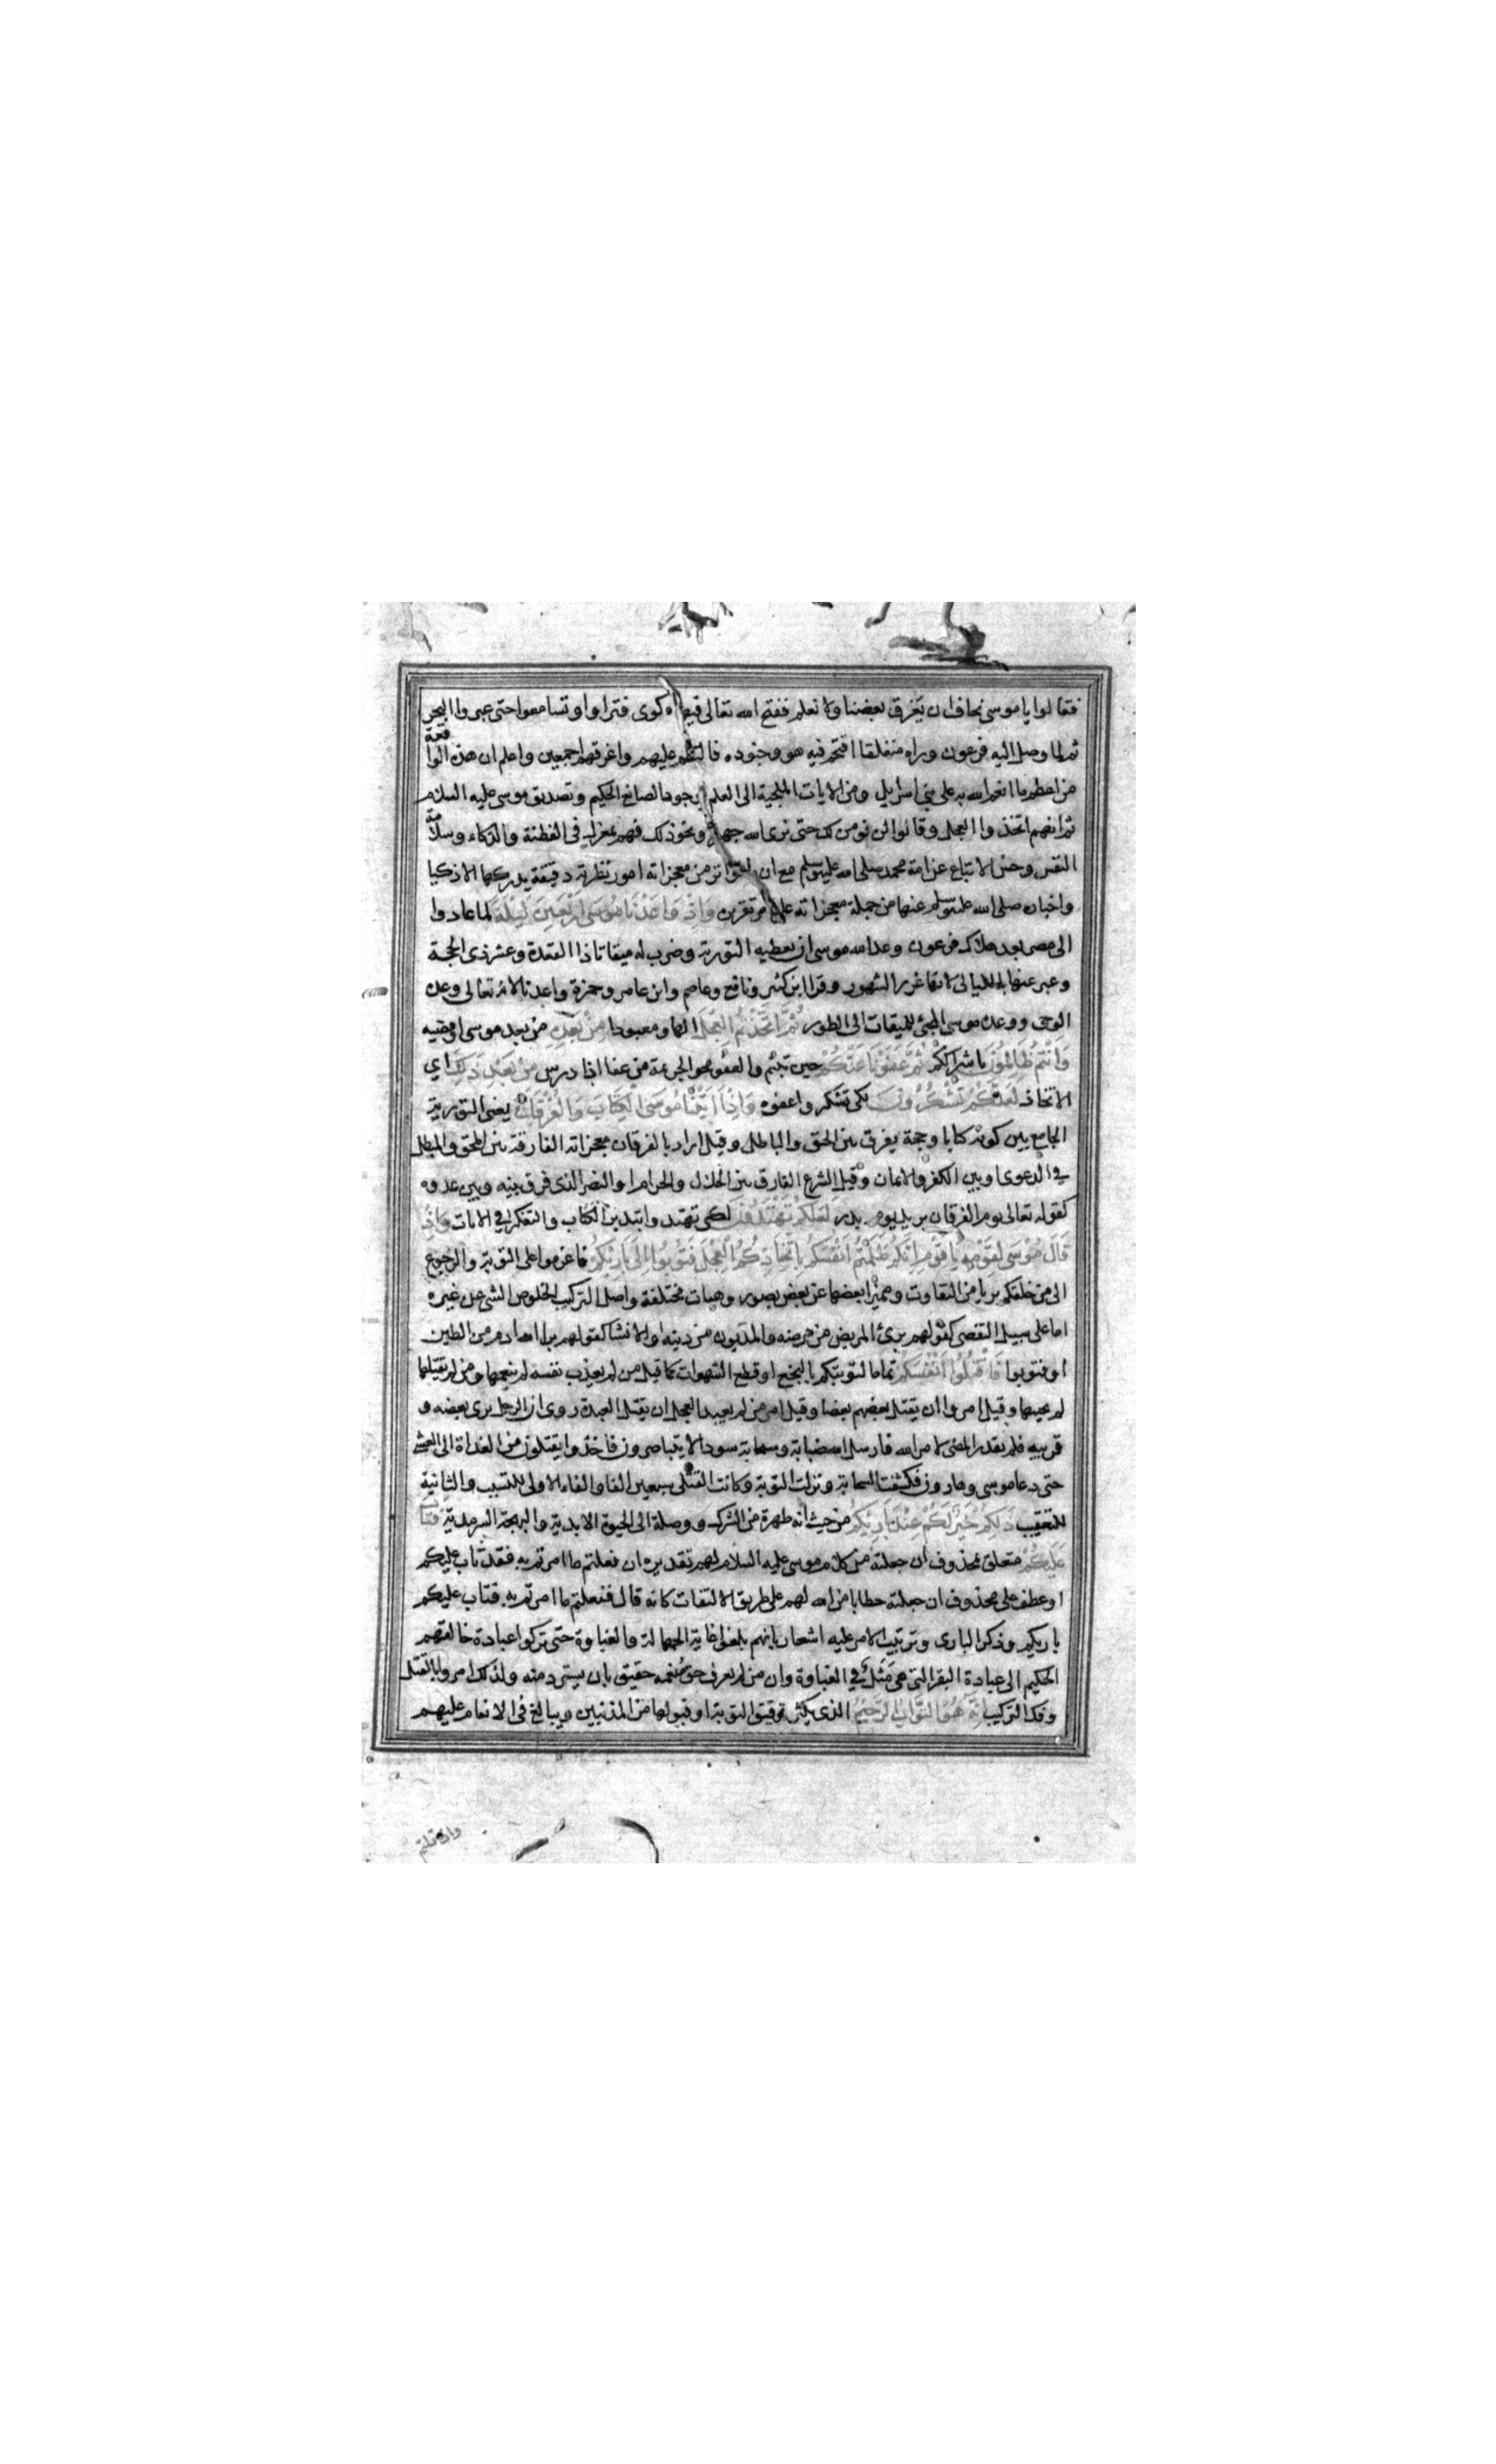 فقالوا يا موسى نخاف ان يغرق بعضنا ولا نعلم ففتح الله تعالى فيها كوى فتراوا وتسامعوا حتى عبروا البحر
ثم لما وصل اليه فرعون وراه منفلقا اقتحم فيه هو وجنوده فالتطم عليهم واغرقهم اجمعين واعلم ان هذه الواقعة
من اعظم ما انعم الله به على بنى اسرايل ومن الايات الملجية الى العلم بوجود الصانع الحكيم وتصديق موسى عليه السلام
ثم انهم اتخذوا العجل وقالوا لن نومن لك حتى نرى الله جهرة ونحو ذلك فهم بمعزل فى الفطنة والذكاء وسلامة
النفس وحسن الاتباع عن امة محمد صلى الله عليه وسلم مع ان ما تواتر من معجزاته امور نظرية دقيقة يدركها الاذكيا
واخباره صلى الله عليه وسلم عنها من جملة معجزاته على ما مر تقريره وَاِذْ وَاعَدْنَا مُوسَى اَرْبَعِينَ لَيْلَةً لما عادوا
الى مصر بعد هلاك فرعون وعد الله موسى ان يعطيه التورية وضرب له ميقاتا ذا القعدة وعشر ذى الحجة
وعبر عنها بالليالى لانها غرر الشهور وقرا ابن كثير ونافع وعاصم وابن عامر وحمزة واعدنا لانه تعالى وعده
الوحى ووعده موسى المجئ للميقات الى الطور ثُمَّ اتَّخَذْتُمُ الْعِجْلَ الها ومعبودا مِنْ بَعْدِهِ من بعد موسى او مضيه
وَاَنْتُمْ ظَالِمُونَ باشراككم ثُمَّ عَفَوْنَا عَنْكُمْ حين تبتم والعفو محو الجريمة من عفا اذا درس مِنْ بَعْدِ ذَلِكَ اي
الاتخاذ لَعَلَّكُمْ تَشْكُرُونَ لكى تشكروا عفوه وَاِذْ اٰتَيْنَا مُوسَى الْكِتَابَ وَالْفُرْقَانَ يعنى التورية
الجامع بين كونه كتابا وحجة يفرق بين الحق والباطل وقيل اراد بالفرقان معجزاته الفارقة بين المحق والمبطل
في الدعوى او بين الكفر والايمان وقيل الشرع الفارق بين الحلال والحرام او النصر الذى فرق بينه وبين عدوه
كقوله تعالى يوم الفرقان يريد يوم بدر لَعَلَّكُمْ تَهْتَدُونَ لكى تهتدوا بتدبر الكتاب والتفكر في الايات وَاِذْ
قَالَ مُوسَى لِقَوْمِهِ يَا قَوْمِ اِنَّكُمْ ظَلَمْتُمْ اَنْفُسَكُمْ بِاتِّخَاذِكُمُ الْعِجْلَ فَتُوبُوا اِلَى بَارِئِكُمْ فاعزموا على التوبة والرجوع
الى من خلقكم بريا من التفاوت ومميزا بعضها عن بعض بصور وهيات مختلفة واصل التركيب لخلوص الشئ عن غيره
اما على سبيل التفصى كقولهم برئ المريض من مرضه والمديون من دينه او الانشا كقولهم برا الله ادم من الطين
او فتوبوا فَاقْتُلُوا اَنْفُسَكُمْ تماما لتوبتكم بالبخع او قطع الشهوات كما قيل من لم يعذب نفسه لم ينعمها ومن لم يقتلها
لم يحيها وقيل امروا ان يقتل بعضهم بعضا وقيل امر من لم يعبد العجل ان يقتل العبدة روى ان الرجل يرى بعضه و
قريبه فلم يقدر المضى لامر الله فارسل الله ضبابة وسحابة سودا لا يتباصرون فاخذوا يقتلون من الغداة الى العشى
حتى دعا موسى وهارون فكشفت السحابة ونزلت التوبة وكانت القتلى سبعين الفا والفاء الاولى للتسبب والثانية
للتعقيب ذَلِكُمْ خَيْرٌ لَكُمْ عِنْدَ بَارِئِكُمْ من حيث انه طهرة من الشرك ووصلة الى الحيوة الابدية والبهجة السرمدية فَتَابَ
عَلَيْكُمْ متعلق بمحذوف ان جعلته من كلام موسى عليه السلام لهم تقديره ان فعلتم ما امرتم به فقد تاب عليكم
او عطف على محذوف ان جعلته خطابا من الله لهم على طريق الالتفات كانه قال ففعلتم ما امرتم به فتاب عليكم
باريكم وذكر البارى وترتيب الامر عليه اشعار بانهم بلغوا غاية الجهالة والغباوة حتى تركوا عبادة خالقهم
الحكيم الى عبادة البقر التى هى مثل في الغباوة وان من لم يعرف حق منعمه حقيق بان يسترد منه ولذلك امروا بالقتل
وفك التركيب اِنَّهُ هُوَ التَّوَّابُ الرَّحِيمُ الذى يكثر توفيق التوبة او قبولها من المذنبين ويبالغ فى الانعام عليهم
واذ قلتم